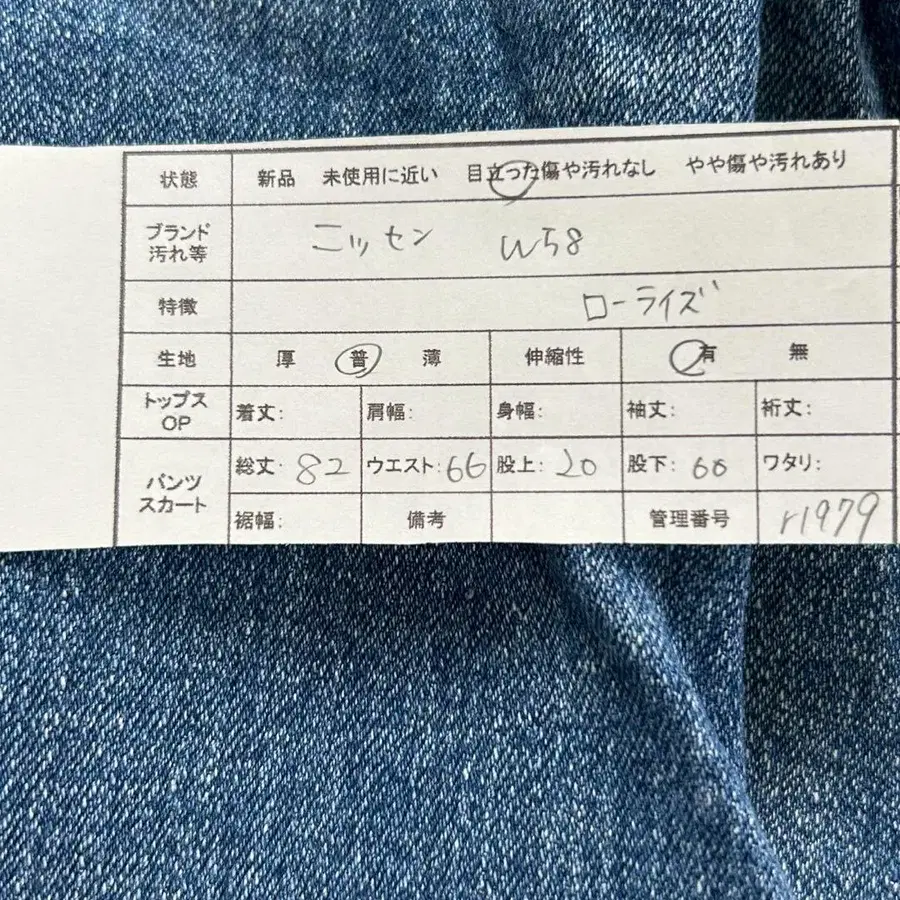 状態 新品 未使用に近い 目立った傷や汚れなし やや傷や汚れあり
ブランド
汚れ等 ニッセン W58
特徴 ローライズ
生地 厚 普 薄 伸縮性 有 無
トップス
OP 着丈: 肩幅: 身幅: 袖丈: 裄丈:
パンツ
スカート 総丈: 82 ウエスト: 66 股上: 20 股下: 60 ワタリ:
裾幅: 備考 管理番号 r1979